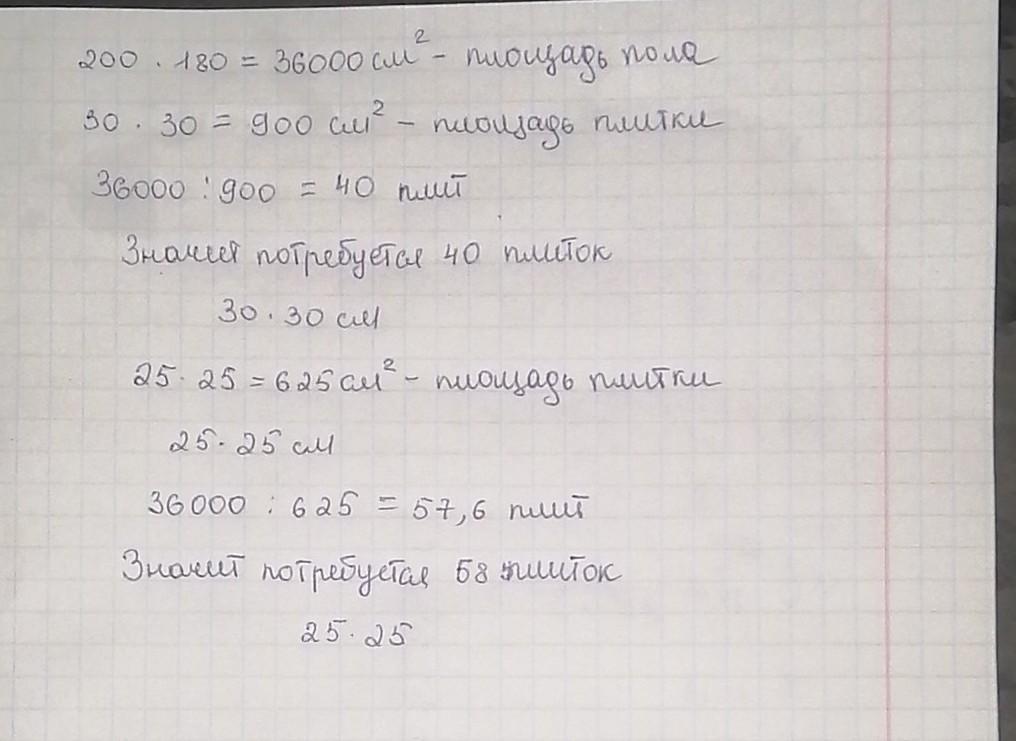 200 · 180 = 36000 см² - площадь пола
30 · 30 = 900 см² - площадь плитки
36000 : 900 = 40 плит
Значит потребуется 40 плиток
30 · 30 см
25 · 25 = 625 см² - площадь плитки
25 · 25 см
36000 : 625 = 57,6 плит
Значит потребуется 58 плиток
25 · 25